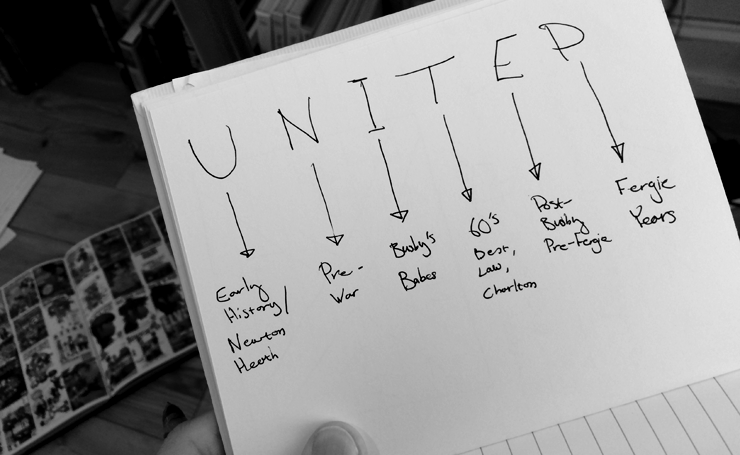 U N I T E D
Early
History/
Newton
Heath
Pre-
War
Busby's
Babes
60's
Best,
Law,
Charlton
Post-
Busby
Pre-Fergie
Fergie
Years